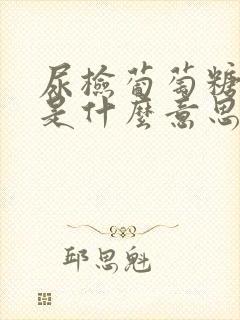 尿檢葡萄糖
是什麼意思
邱思魁